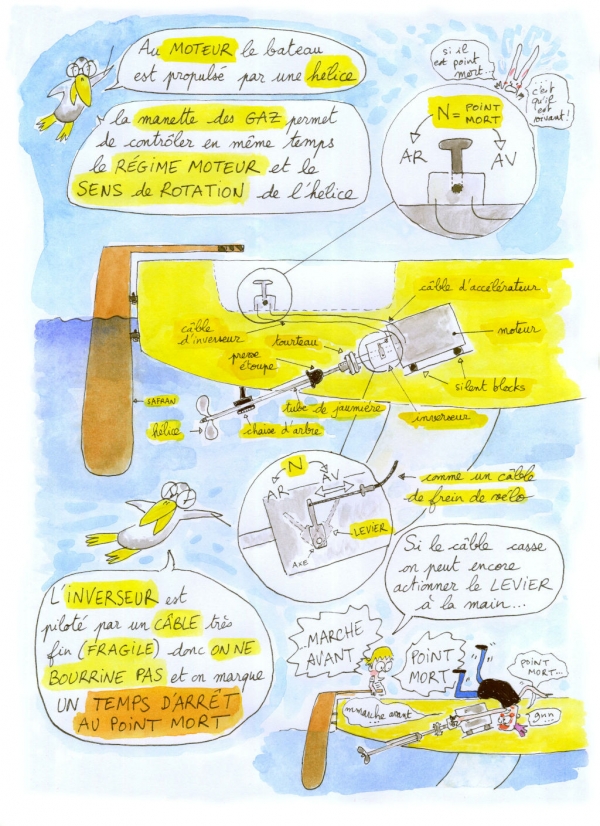 Au MOTEUR le bateau
est propulsé par une hélice
la manette des GAZ permet
de contrôler en même temps
le RÉGIME MOTEUR et le
SENS de ROTATION de l'hélice
si il
est point
mort...
c'est
qu'il
est
vivant!
N = POINT
MORT
AR
AV
câble d'accélérateur
câble
d'inverseur
tourteau
moteur
presse
étoupe
silent blocks
SAFRAN
tube de jaumière
inverseur
hélice
chaise d'arbre
N
AR
AV
comme un câble
de frein de vélo
LEVIER
AXE
Si le câble casse
on peut encore
actionner le LEVIER
à la main...
L'INVERSEUR est
piloté par un CÂBLE très
fin (FRAGILE) donc ON NE
BOURRINE PAS et on marque
UN TEMPS D'ARRÊT
AU POINT MORT
MARCHE
AVANT
POINT
MORT
POINT
MORT...
mmarche avant
gnn